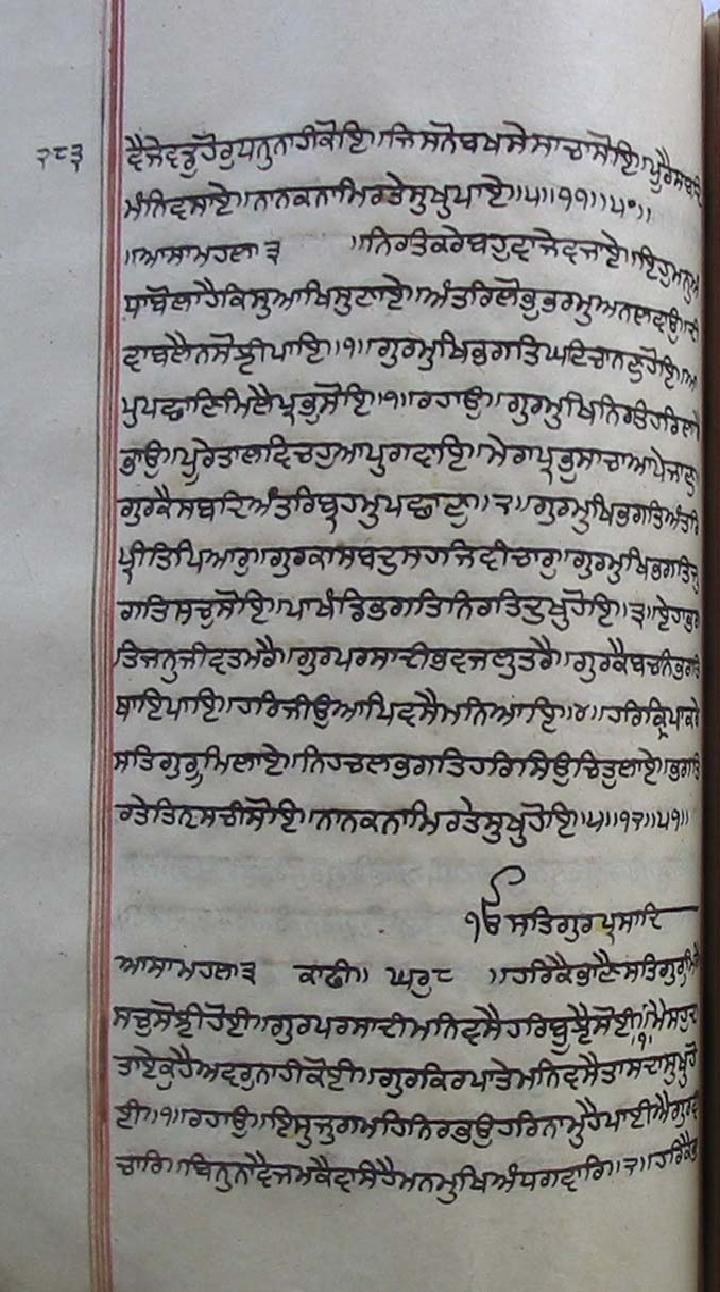 ੨੮੩
ਵੈਜੇਵਡੁਹੋਰੁਧਨੁਨਾਹੀਕੋਇ॥ਜਿਸਨੋਬਖਸੇਸਾਚਾਸੋਇ॥ਪੂਰੈਸਬਦਿ
ਮੰਨਿਵਸਾਏ॥ਨਾਨਕਨਾਮਿਰਤੇਸੁਖੁਪਾਏ॥੫॥੧੧॥੫੦॥
॥ਆਸਾਮਹਲਾ੩ ॥ਨਿਰਤਿਕਰੇਬਹੁਵਾਜੇਵਜਾਏ॥ਇਹੁਮਨੁਅੰ
ਧਾਬੋਲਾਹੈਕਿਸੁਆਖਿਸੁਣਾਏ॥ਅੰਤਰਿਲੋਭੁਭਰਮੁਅਨਲਵਾਉ॥ਦੀ
ਵਾਬਲੈਨਸੋਝੀਪਾਇ॥੧॥ਗੁਰਮੁਖਿਭਗਤਿਘਟਿਚਾਨਣੁਹੋਇ॥ਆ
ਪੁਪਛਾਣਿਮਿਲੈਪ੍ਰਭੁਸੋਇ॥੧॥ਰਹਾਉ॥ਗੁਰਮੁਖਿਨਿਰਤਿਹਰਿਲਾਗੈ
ਭਾਉ॥ਪੂਰੇਤਾਲਵਿਚਹੁਆਪੁਗਵਾਇ॥ਮੇਰਾਪ੍ਰਭੁਸਾਚਾਆਪੇਜਾਣੁ
ਗੁਰਕੈਸਬਦਿਅੰਤਰਿਬ੍ਰਹਮੁਪਛਾਣੁ॥੨॥ਗੁਰਮੁਖਿਭਗਤਿਅੰਤਰਿ
ਪ੍ਰੀਤਿਪਿਆਰੁ॥ਗੁਰਕਾਸਬਦੁਸਹਜਿਵੀਚਾਰੁ॥ਗੁਰਮੁਖਿਭਗਤਿਜੁ
ਗਤਿਸਚੁਸੋਇ॥ਪਾਖੰਡਿਭਗਤਿਨਿਰਤਿਦੁਖੁਹੋਇ॥੩॥ਏਹਾਭਗ
ਤਿਜਨੁਜੀਵਤਮਰੈ॥ਗੁਰਪਰਸਾਦੀਭਵਜਲੁਤਰੈ॥ਗੁਰਕੈਬਚਨਿਭਗਤਿ
ਥਾਇਪਾਇ॥ਹਰਿਜੀਉਆਪਿਵਸੈਮਨਿਆਇ॥੪॥ਹਰਿਕ੍ਰਿਪਾਕਰੇ
ਸਤਿਗੁਰੂਮਿਲਾਏ॥ਨਿਹਚਲਭਗਤਿਹਰਿਸਿਉਚਿਤੁਲਾਏ॥ਭਗਤਿ
ਰਤੇਤਿਨ੍ਹਸਚੀਸੋਇ॥ਨਾਨਕਨਾਮਿਰਤੇਸੁਖੁਹੋਇ॥੫॥੧੨॥੫੧॥
ੴਸਤਿਗੁਰਪ੍ਰਸਾਦਿ
ਆਸਾਮਹਲਾ੩ ਕਾਫੀ॥ ਘਰੁ੮ ॥ਹਰਿਕੈਭਾਣੈਸਤਿਗੁਰੁਮਿਲੈ
ਸਚੁਸੋਝੀਹੋਈ॥ਗੁਰਪਰਸਾਦੀਮਨਿਵਸੈਹਰਿਬੂਝੈਸੋਈ॥੧॥ਮੈਸਹੁਦਾ
ਤਾਏਕੁਹੈਅਵਰੁਨਾਹੀਕੋਈ॥ਗੁਰਕਿਰਪਾਤੇਮਨਿਵਸੈਤਾਸਦਾਸੁਖੁਹੋ
ਈ॥੧॥ਰਹਾਉ॥ਇਸੁਜੁਗਮਹਿਨਿਰਭਉਹਰਿਨਾਮੁਹੈਪਾਈਐਗੁਰਵੀ
ਚਾਰਿ॥ਬਿਨੁਨਾਵੈਜਮਕੈਵਸਿਹੈਮਨਮੁਖਿਅੰਧਗਵਾਰਿ॥੨॥ਹਰਿਕੈਭ